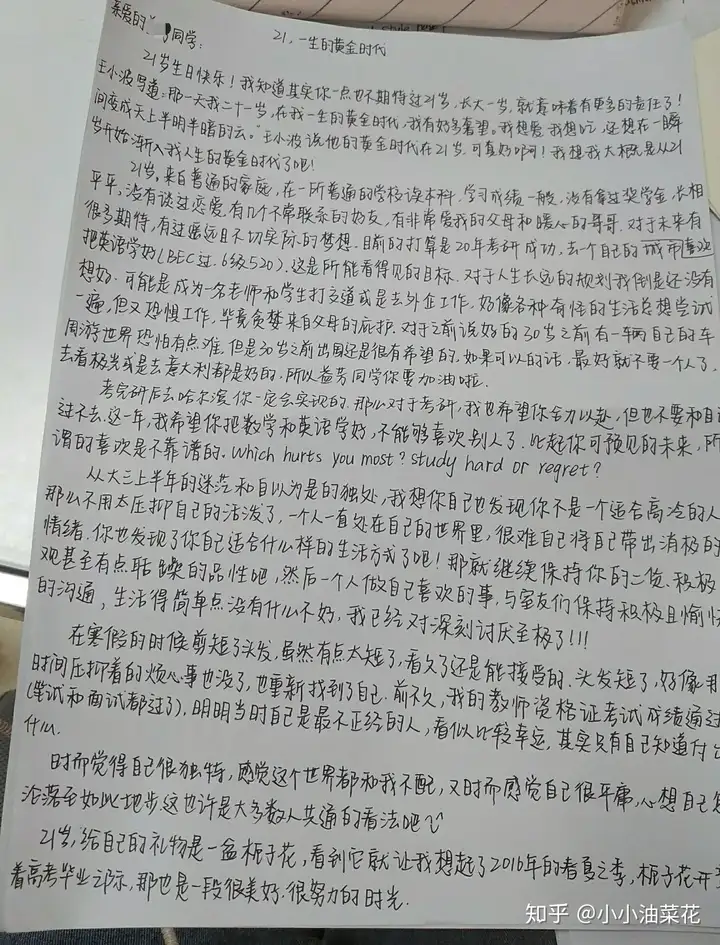 亲爱的 同学:
21,一生的黄金时代
21岁生日快乐!我知道其实你一点也不期待过21岁,长大一岁,就意味着有更多的责任了!
王小波写道:那一天我二十一岁,在我一生的黄金时代,我有好多奢望。我想爱,我想吃,还想在一瞬
间变成天上半明半暗的云。"王小波说他的黄金时代在21岁,可真好呀!我想我大概是从21
岁开始渐入我人生的黄金时代了吧!
21岁,来自普通的家庭,在一所普通的学校读本科,学习成绩一般,没有拿过奖学金,长相
平平,没有谈过恋爱,有几个不常联系的好友,有非常爱我的父母和暖心的哥哥.对于未来有
很多期待,有过遥远且不切实际的梦想.目前的打算是20年考研成功,去一个自己的城市喜欢
把英语学好(BEC过.6级520).这是所能看得见的目标.对于人生长远的规划我倒是还没有
想好.可能是成为一名老师和学生打交道或是去外企工作.好像各种奇怪的生活总想尝试
一遍,但又恐惧工作,毕竟贪婪来自父母的庇护.对于之前说好的30岁之前有一辆自己的车
周游世界恐怕有点难.但是30岁之前出国还是很有希望的.如果可以的话,最好就不要一个人了,
去看极光或是去意大利都是好的.所以益芳同学你要加油啦.
考完研后去哈尔滨你一定会实现的.那么对于考研,我也希望你全力以赴,但也不要和自
过不去.这一年,我希望你把数学和英语学好,不能够喜欢别人了.比起你可预见的未来,所
谓的喜欢是不靠谱的. Which hurts you most? study hard or regret?
从大三上半年的迷茫和自以为是的独处,我想你自己也发现你不是一个适合高冷的人
那么不用太压抑自己的活泼了,一个人一直处在自己的世界里,很难自己将自己带出消极的
情绪.你也发现了你自己适合什么样的生活方式了吧!那就继续保持你的二货.积极
观甚至有点聒躁的品性吧,然后一个人做自己喜欢的事,与室友们保持积极且愉快
的沟通,生活得简单点没有什么不好,我已经对深刻讨厌至极了!!!
在寒假的时候剪短了头发,虽然有点太短了,看久了还是能接受的.头发短了,好像那
时间压抑着的烦心事也没了,也重新找到了自己.前不久,我的教师资格证考试成绩通过
(笔试和面试都过了),明明当时自己是最不正经的人,看似比较幸运,其实只有自己知道付出
什么.
时而觉得自己很独特,感觉这个世界都和我不配,又时而感觉自己很平庸,心想自己怎
沦落至如此地步.这也许是大多数人共通的看法吧
21岁,给自己的礼物是一盆栀子花,看到它就让我想起了2016年的春夏之季,栀子花开
着高考毕业之际,那也是一段很美好.很努力的时光.
知乎 @小小油菜花